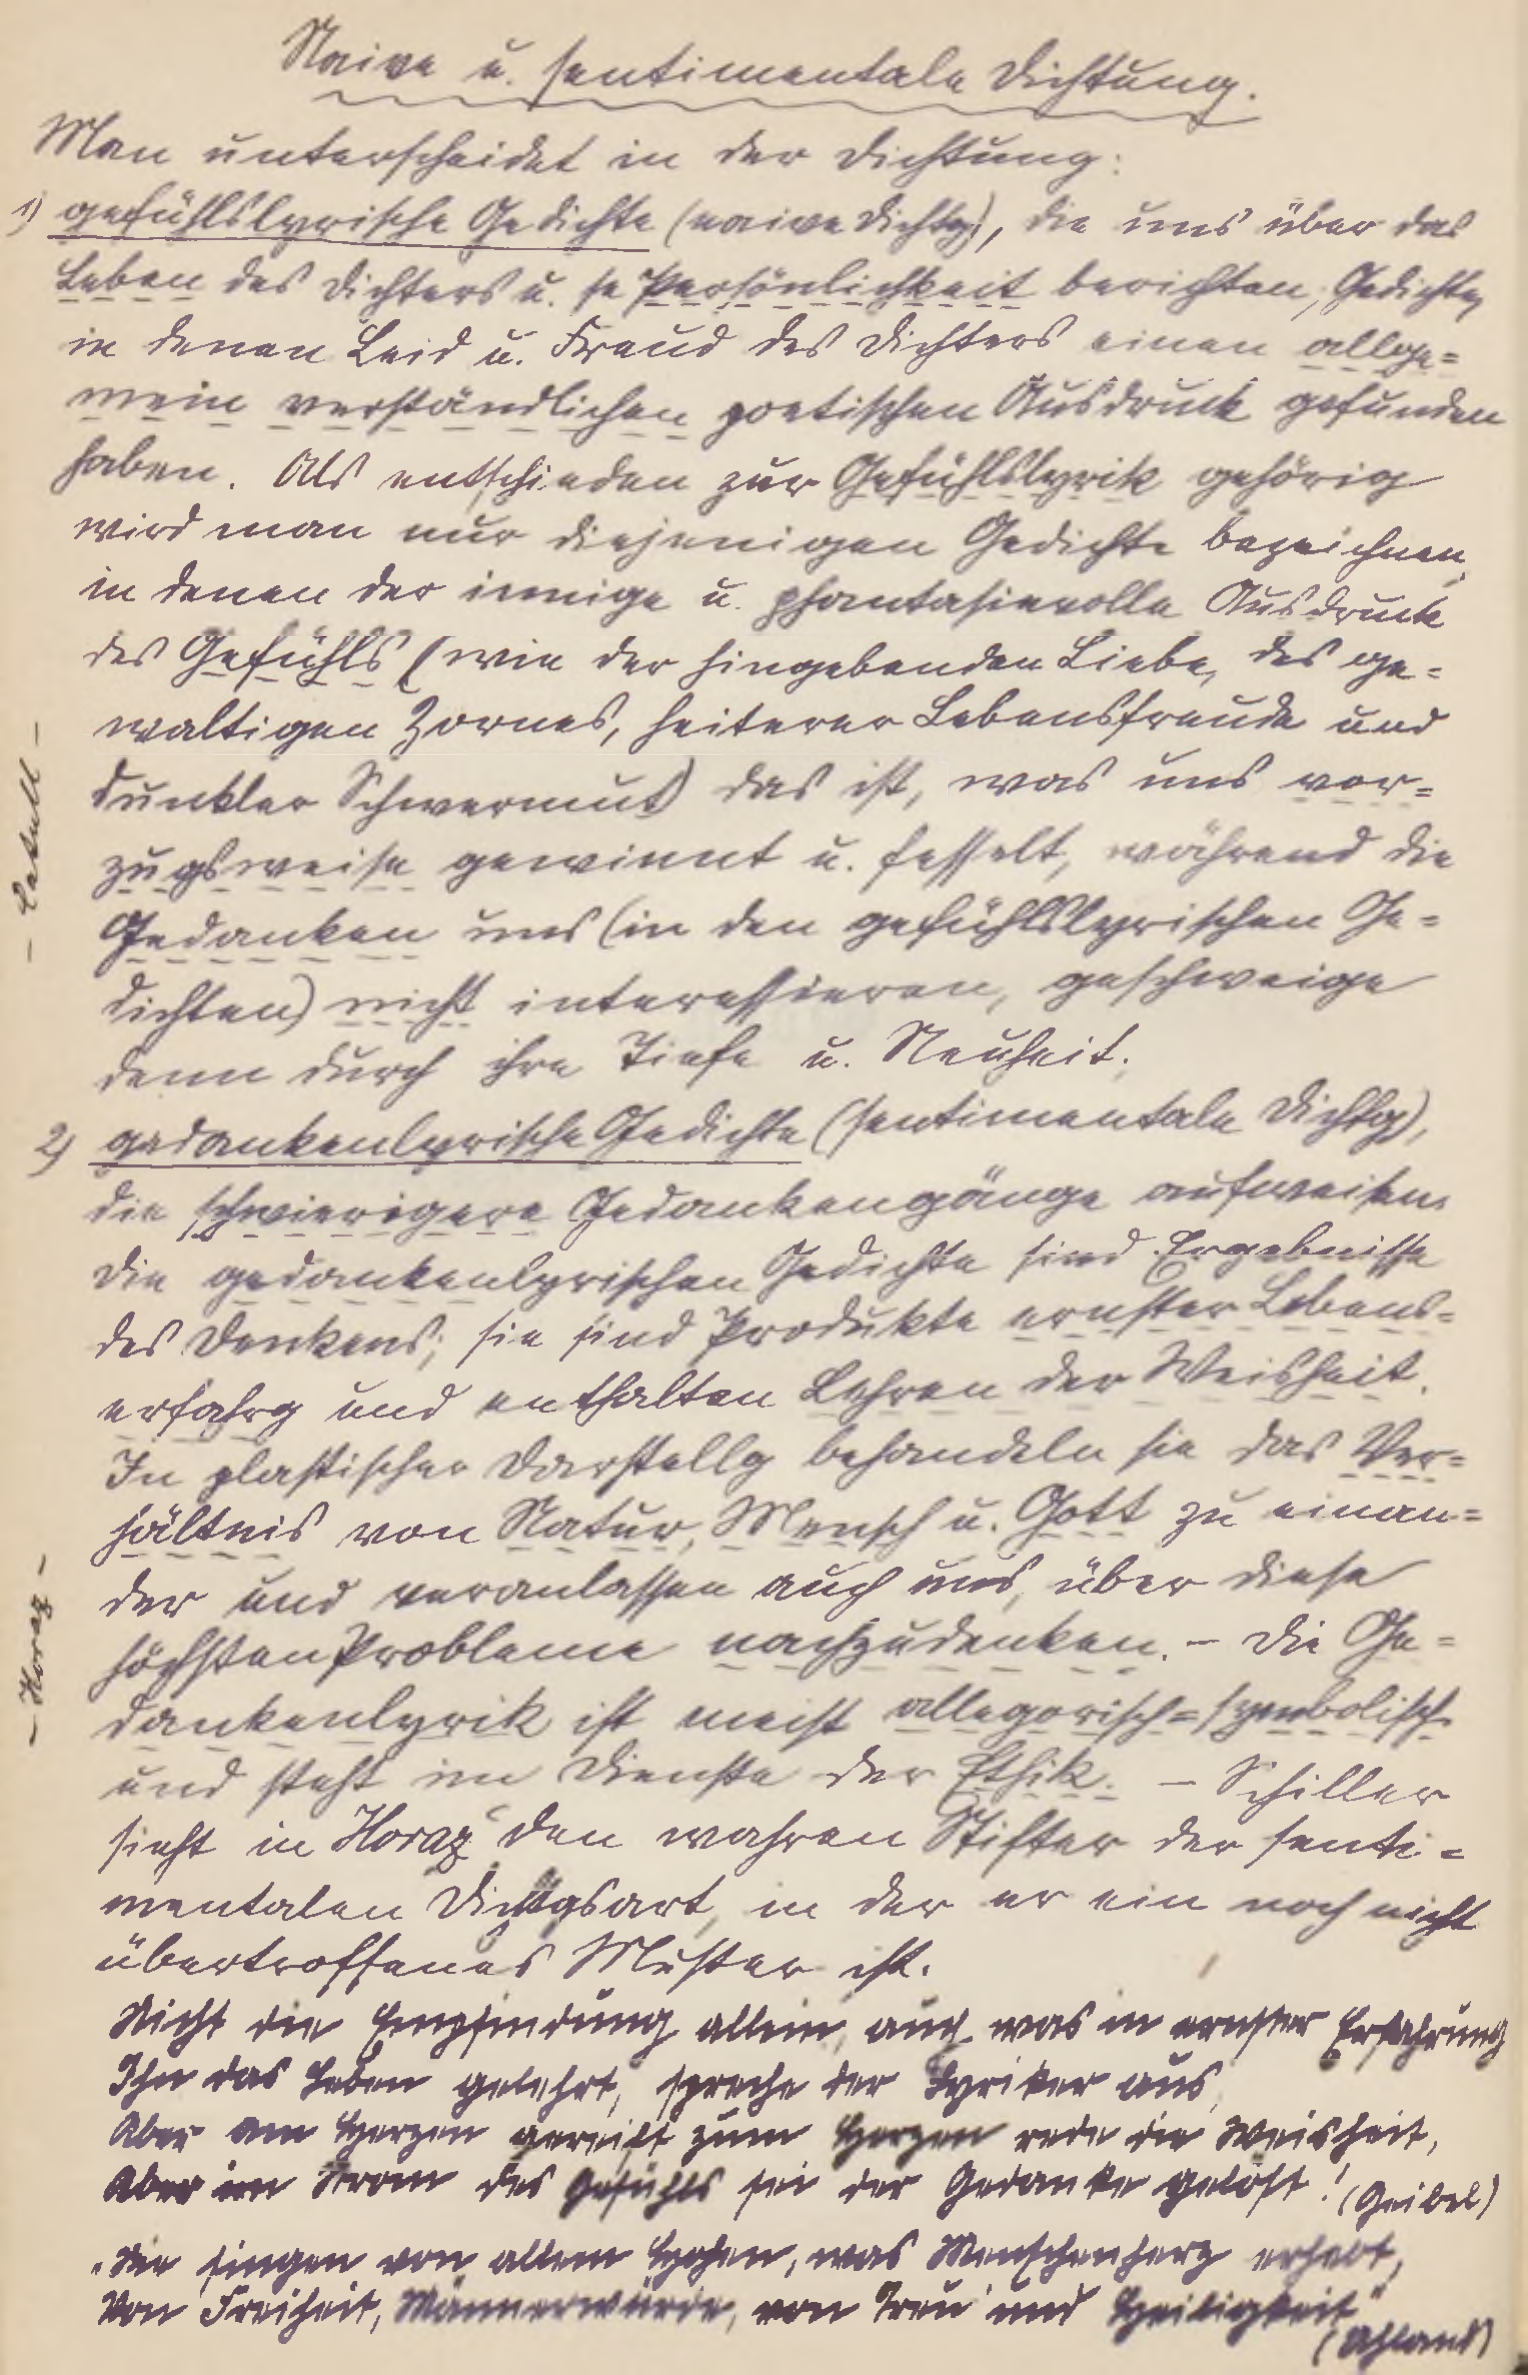 Naive u. sentimentale Dichtung.
Man unterscheidet in der Dichtung:
1) gefühlslyrische Gedichte (naive Dichtg), die uns über das
Leben des Dichters u. se Persönlichkeit berichten, Gedichte,
in denen Leid u. Freud des Dichters einen allge=
mein verständlichen poetischen Ausdruck gefunden
haben. Als entschieden zur Gefühlslyrik gehörig
wird man nur diejenigen Gedichte bezeichnen,
in denen der innige u. phantasievolle Ausdruck
des Gefühls (wie der hingebenden Liebe, des ge=
waltigen Zornes, heiterer Lebensfreude und
dunkler Schwermut) das ist, was uns vor=
zugsweise gewinnt u. fesselt, während die
Gedanken uns (in den gefühlslyrischen Ge=
dichten) nicht interessieren, geschweige
denn durch ihre Tiefe u. Neuheit.
- Catull -
2) gedankenlyrische Gedichte (sentimentale Dichtg),
die schwierigere Gedankengänge aufweisen.
Die gedankenlyrischen Gedichte sind Ergebnisse
des Denkens; sie sind Produkte ernster Lebens=
erfahrg und enthalten Lehren der Weisheit.
In plastischer Darstellg behandeln sie das Ver=
hältnis von Natur, Mensch u. Gott zu einan=
der und veranlassen auch uns, über diese
höchsten Probleme nachzudenken. - Die Ge=
dankenlyrik ist meist allegorisch=symbolisch
und steht im Dienste der Ethik. - Schiller
sieht in Horaz den wahren Stifter der senti=
mentalen Dichtgsart, in der er ein noch nicht
übertroffenes Muster ist.
- Horaz -
Nicht die Empfindung allein, auch was in ernster Erfahrung
Ihn das Leben gelehrt, spreche der Lyriker aus,
Aber am Herzen gereift zum Herzen rede die Weisheit,
Aber im Strom des Gefühls sei der Gedanke gelöst! (Geibel)
"Sie singen von allem Hohen, was Menschenherz erhebt,
Von Freiheit, Männerwürde, von Treu und Heiligkeit"
(Uhland)